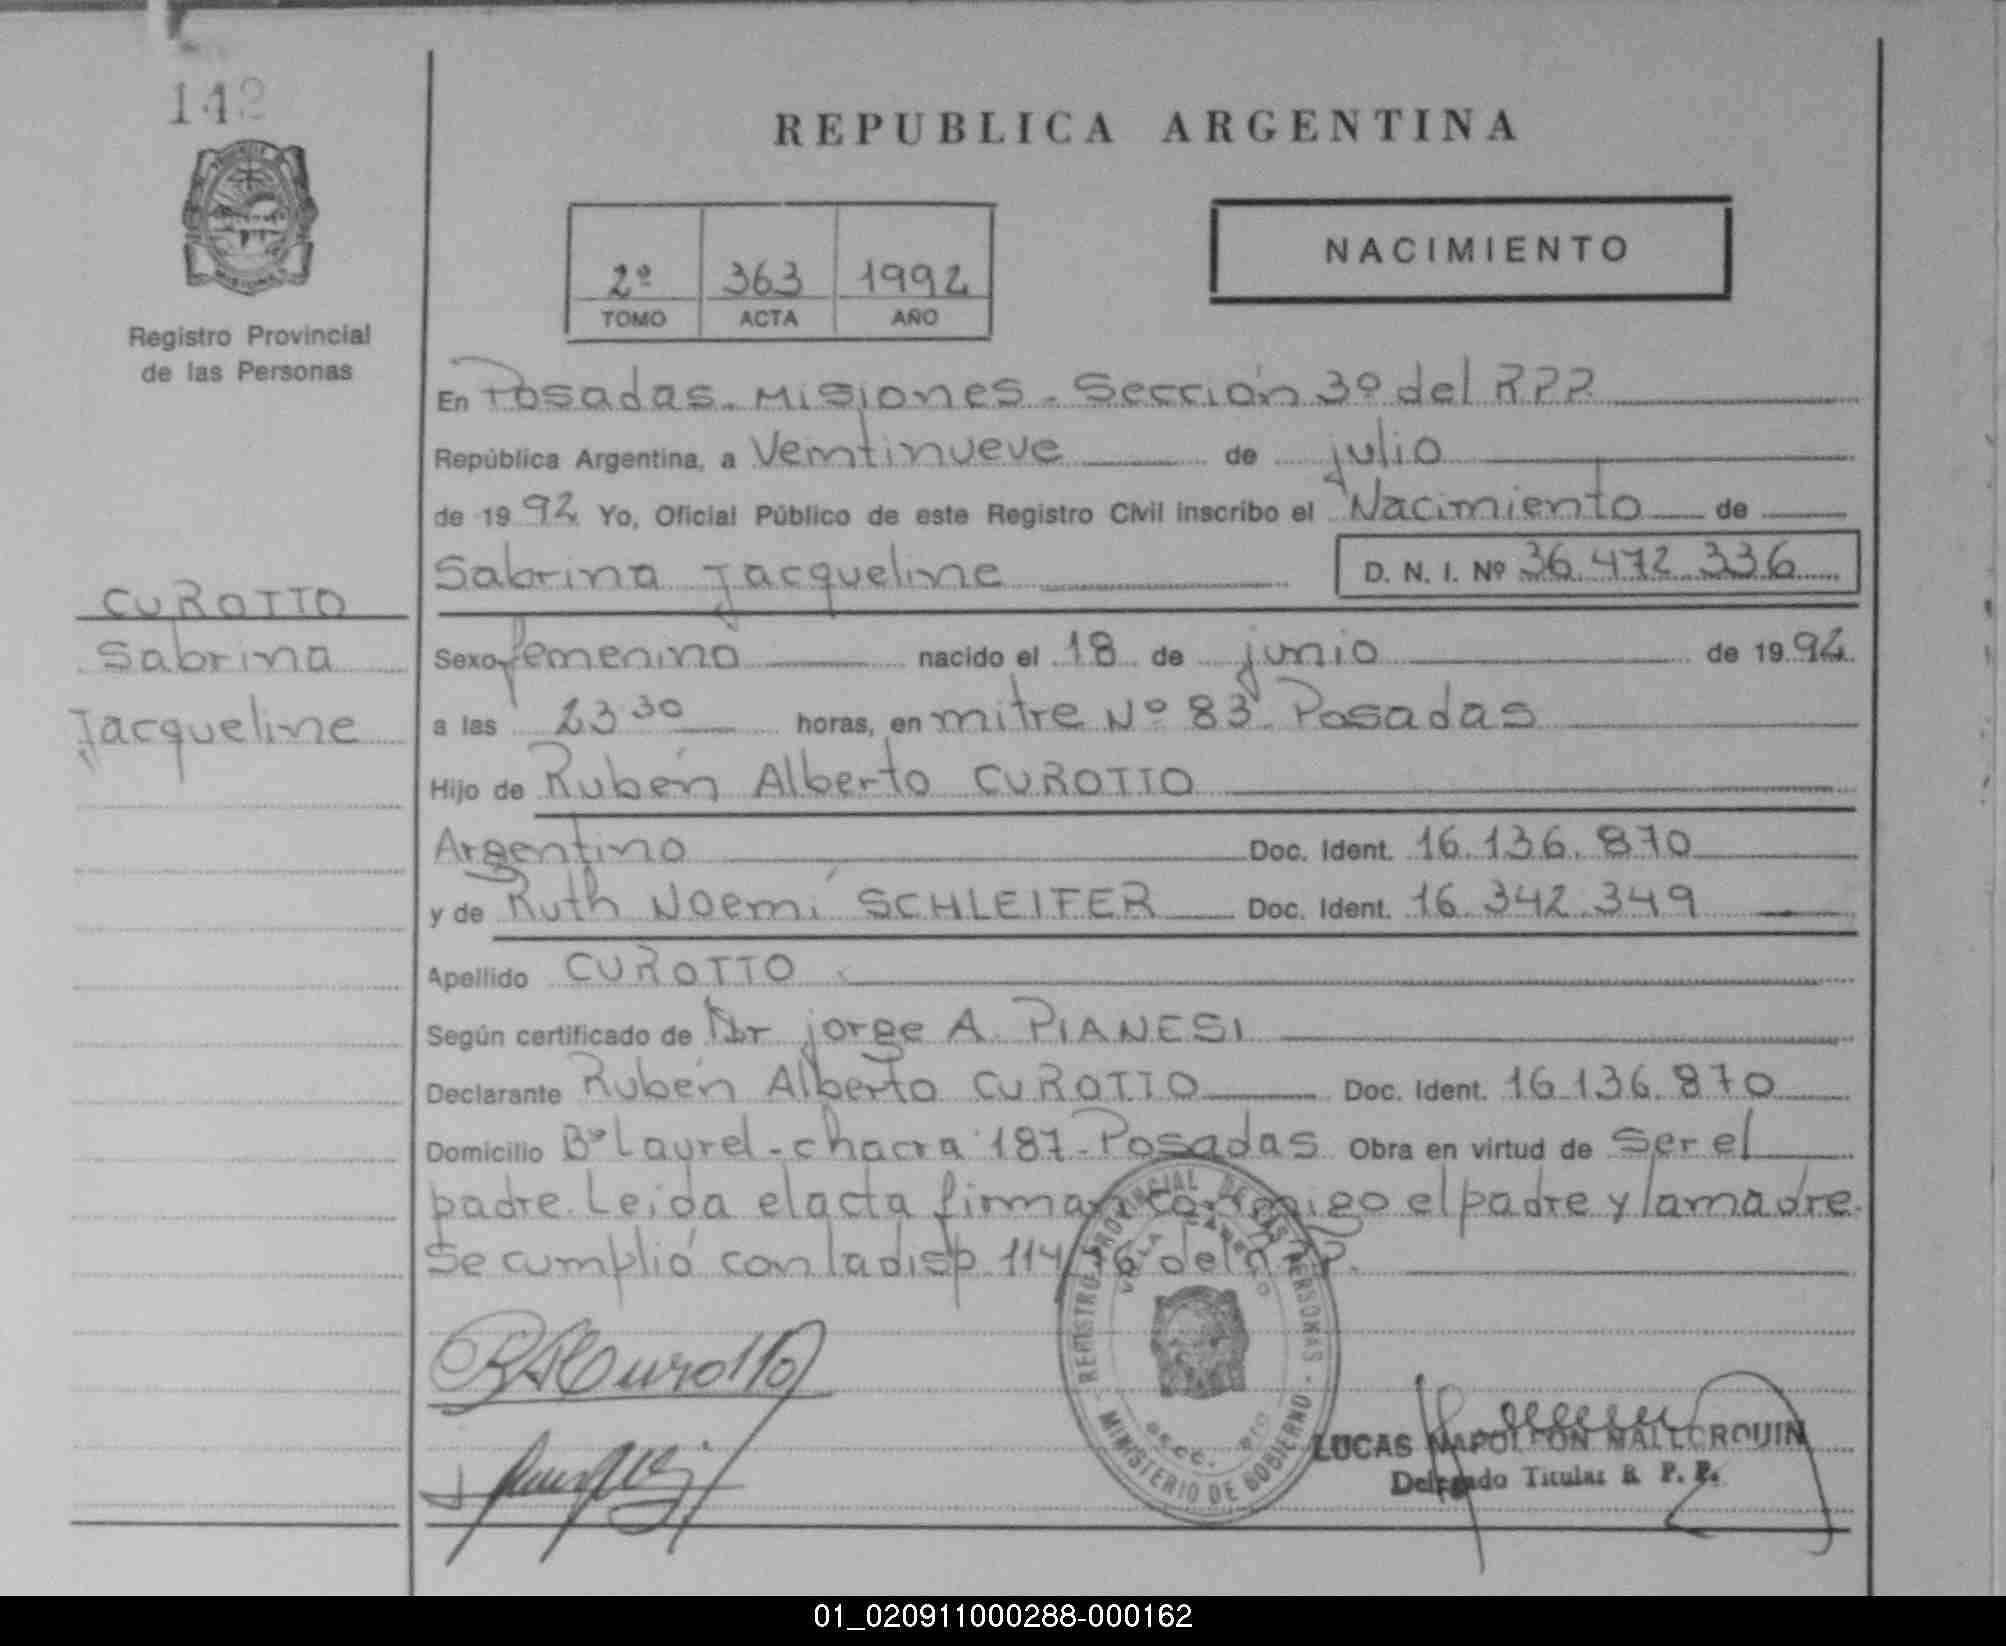 142
REPUBLICA ARGENTINA
NACIMIENTO
2º 363 1992
TOMO ACTA AÑO
Registro Provincial
de las Personas
En Posadas. Misiones - Sección 3º del RPP
República Argentina, a Veintinueve de julio
de 1992 Yo, Oficial Público de este Registro Civil inscribo el Nacimiento de
Sabrina Jacqueline D. N. I. Nº 36.472.336
CUROTTO
Sabrina
Jacqueline
Sexo femenino nacido el 18 de junio de 1992
a las 23 30 horas, en mitre Nº 83 Posadas
Hijo de Rubén Alberto CUROTTO
Argentino Doc. Ident. 16.136.870
y de Ruth Noemí SCHLEIFER Doc. Ident. 16.342.349
Apellido CUROTTO
Según certificado de Dr jorge A. PIANESI
Declarante Rubén Alberto CUROTTO Doc. Ident. 16.136.870
Domicilio Bº Laurel - chacra 187 - Posadas Obra en virtud de ser el
padre. Leida el acta firman conmigo el padre y la madre.
Se cumplió con la disp. 114 del
REGISTRO PROVINCIAL DE LAS PERSONAS
MINISTERIO DE GOBIERNO
RACurotto
LUCAS NAPOLEON MALLCROUIN
Delegado Titular R. P. P.
01_020911000288-000162